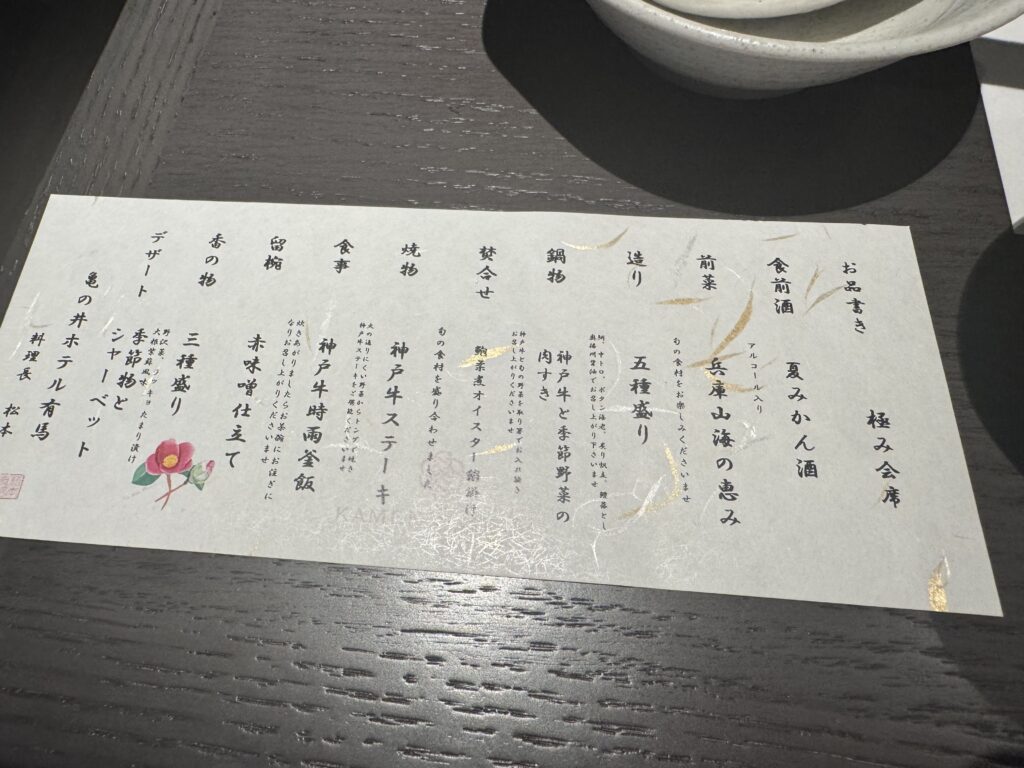 お品書き
極み会席
食前酒
夏みかん酒
アルコール入り
前菜
兵庫山海の恵み
旬の食材をお楽しみくださいませ
造り
五種盛り
鯛、中トロ、ボタン海老、炙り帆立、鱧落とし
播州醤油でお召し上がり下さいませ
鍋物
神戸牛と季節野菜の
肉すき
神戸牛と旬の野菜を取り箸でお入れ頂き
お召し上がりくださいませ
焚合せ
鮑柔煮オイスター餡掛け
旬の食材を盛り合わせました
焼物
神戸牛ステーキ
火の通りにくい野菜からトングで焼き
神戸牛ステーキをご堪能くださいませ
食事
神戸牛時雨釜飯
炊きあがりましたらお茶碗にお注ぎに
なりお召し上がりくださいませ
留椀
赤味噌仕立て
香の物
三種盛り
野沢菜、
大根紫蘇風味、
たまり漬け
デザート
季節物と
シャーベット
亀の井ホテル有馬
料理長 松本